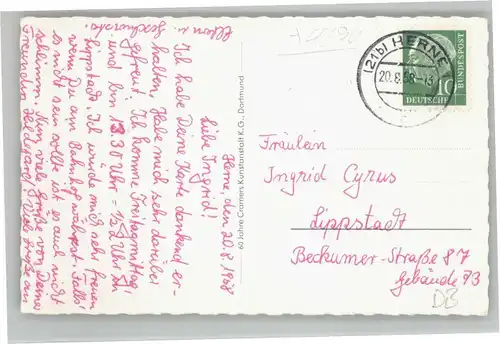 Herne, den 20.8.1958
Liebe Ingrid!
Ich habe Deine Karte dankend er-
halten. Habe mich sehr darüber
gefreut. Ich komme Freitagmittag
und bin 13.30 Uhr - 1/2 2 Uhr in
Lippstadt. Ich würde mich sehr freuen
wenn Du am Bahnhof wärest. Falls
es nicht sein sollte ist es auch nicht
schlimm. Nun viele Grüße von Deiner
Freundin Hildegard! Viele Grüße an
Eltern u.
Geschwister
60 Jahre Cramers Kunstanstalt K.G., Dortmund
(21b) HERNE
20.8.58-13
10
DEUTSCHE
BUNDESPOST
Fräulein
Ingrid Cyrus
Lippstadt
Beckumer-Straße 87
Gebäude 73
DB